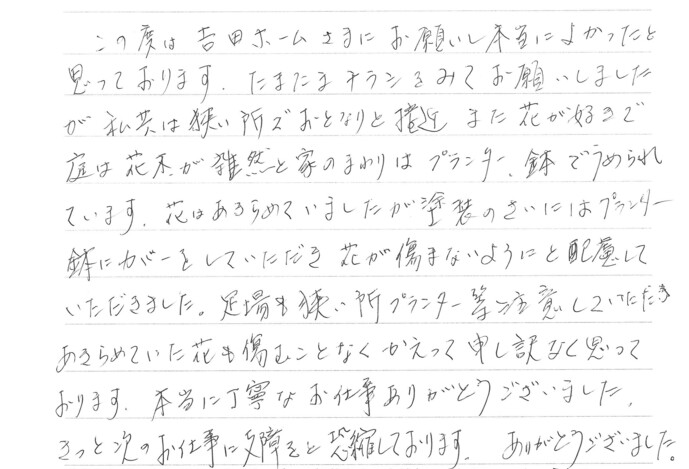 この度は吉田ホームさまにお願いし本当によかったと
思っております。たまたまチラシをみてお願いしました
が私共は狭い所でおとなりと接近また花が好きで
庭は花木が雑然と家のまわりはプランター、鉢でうめられ
ています。花はあきらめていましたが塗装のさいにはプランター
鉢にカバーをしていただき花が傷まないようにと配慮して
いただきました。足場も狭い所プランター等注意していただき
あきらめていた花も傷むことなくかえって申し訳なく思って
おります。本当に丁寧なお仕事ありがとうございました。
きっと次のお仕事に支障をと恐縮しております。 ありがとうございました。